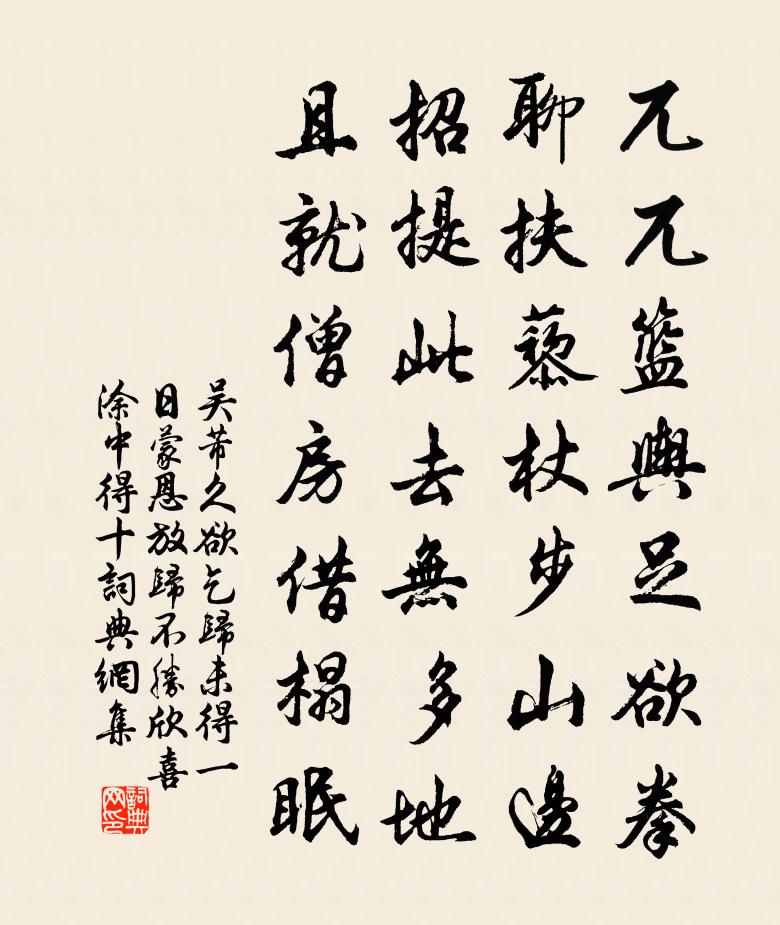 兀兀籃輿足欲拳
聊扶藜杖步山邊
招提此去無多地
且就僧房借榻眠
吴芾久欲乞歸未得一
日蒙恩放歸不勝欣喜
涂中得十詞典網集
詞典网印